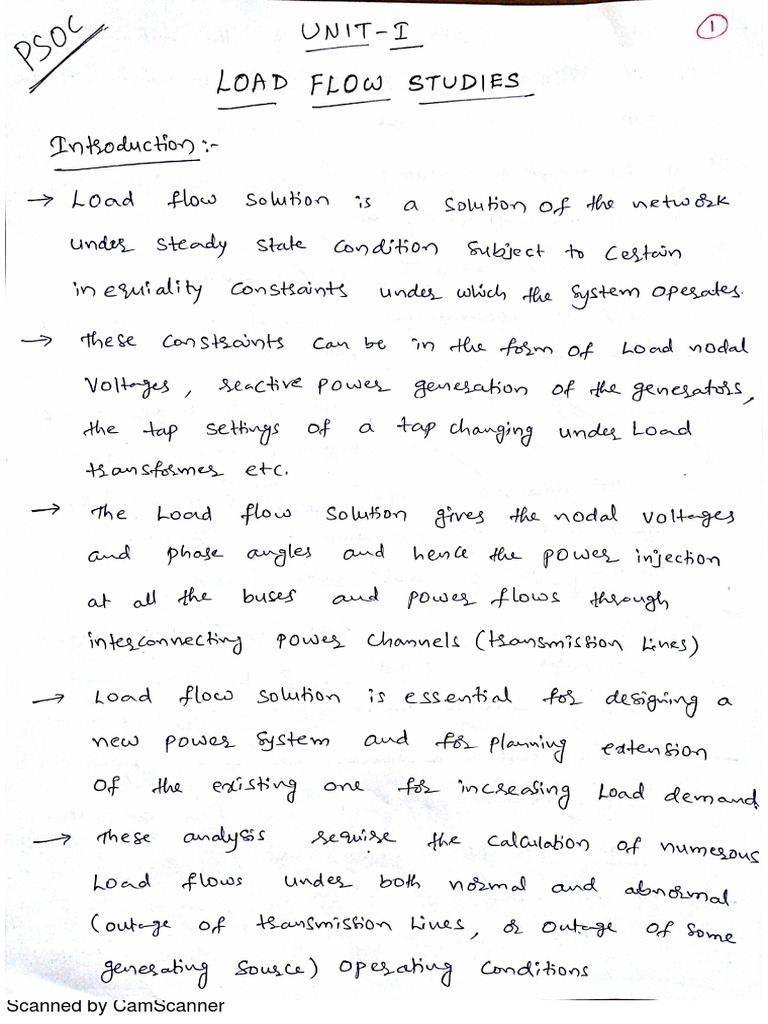 PSOC
UNIT-I
1
LOAD FLOW STUDIES
Introduction:-
→ Load flow solution is a solution of the network
under steady state condition subject to certain
inequiality constraints under which the system operates.
→ These constraints can be in the form of Load nodal
Voltages, reactive power generation of the generators,
the tap settings of a tap changing under Load
transformer etc.
→ The Load flow solution gives the nodal voltages
and phase angles and hence the power injection
at all the buses and power flows through
interconnecting power channels (transmission Lines)
→ Load flow solution is essential for designing a
new power system and for planning extension
of the existing one for increasing Load demand
→ These analysis require the calculation of numerous
Load flows under both normal and abnormal
(outage of transmission Lines, or outage of some
generating source) operating conditions
Scanned by CamScanner